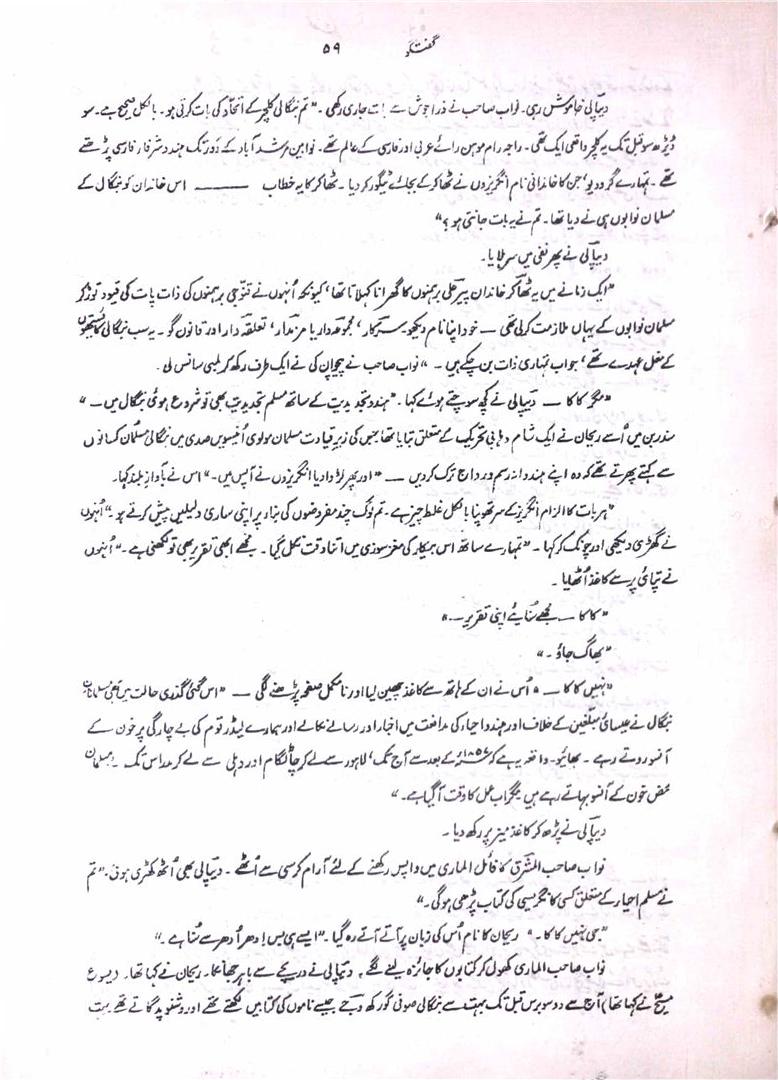 گفتگو ۵۹
دیپالی خاموش رہی۔ نواب صاحب نے ذرا جوش سے بات جاری رکھی۔ "تم بنگالی کلچر کے اتحاد کی بات کرتی ہو۔ بالکل صحیح ہے۔ سو
ڈیڑھ سو قبل تک یہ کلچر واقعی ایک تھی۔ راجہ رام موہن رائے عربی اور فارسی کے عالم تھے۔ نوابین مرشد آباد کے دَور تک ہندو شرفاء فارسی پڑھتے
تھے۔ تمہارے گرو دیو، جن کا خاندانی نام انگریزوں نے ٹھاکر کے بجائے ٹیگور کر دیا۔ ٹھاکر کا یہ خطاب ——— اس خاندان کو بنگال کے
مسلمان نوابوں ہی نے دیا تھا۔ تم نے یہ بات جانتی ہو؟"
دیپالی نے پھر نفی میں سر ہلایا۔
"ایک زمانے میں یہ ٹھاکر خاندان پیر علی برہمنوں کا گھرانا کہلاتا تھا، کیونکہ اُنہوں نے قنوّجی برہمنوں کی ذات پات کی قیود توڑ کر
مسلمان نوابوں کے یہاں ملازمت کر لی تھی — خود اپنا نام دیکھو۔ سرکار، مجموعہ دار یا مزمدار، تعلقہ دار اور قانون گو۔ یہ سب بنگالی کائستھوں
کے مغل عہدے تھے، جو اب تمہاری ذات بن چکے ہیں۔ " نواب صاحب نے پیچوان کی نے ایک طرف رکھ کر لمبی سانس لی۔
"مگر کاکا — دیپالی نے کچھ سوچتے ہوئے کہا۔ "ہندو تجدیدیت کے ساتھ مسلم تجدیدیت بھی تو شروع ہوئی بنگال میں — "
سندر بن میں اُسے ریحان نے ایک شام وہابی تحریک کے متعلق بتایا تھا جس کی زیرِ قیادت مسلمان مولوی اُنیسویں صدی میں بنگالی مسلمان کسانوں
سے کہتے پھرتے تھے کہ وہ اپنے ہندوانہ رسم و رواج ترک کر دیں — "اور پھر لڑوا دیا انگریزوں نے آپس میں۔" اس نے بآوازِ بلند کہا۔
"ہر بات کا الزام انگریز کے سر تھوپنا بالکل غلط چیز ہے۔ تم لوگ چند مفروضوں کی بناء پر اپنی ساری دلیلیں پیش کرتے ہو۔" اُنہوں
نے گھڑی دیکھی اور چونک کر کہا۔ "تمہارے ساتھ اس بیکار کی مغز سوزی میں اتنا وقت نکل گیا۔ مجھے ابھی تقریر بھی تو لکھنی ہے۔" اُنہوں
نے تپائی پر سے کاغذ اُٹھایا۔
"کاکا — مجھے سُنایئے اپنی تقریر —"
"بھاگ جاؤ۔"
"نہیں کاکا —" اُس نے ان کے ہاتھ سے کاغذ چھین لیا اور نامکمل صفحہ پڑھنے لگی — "اس گئی گذری حالت میں بھی مسلمانانِ
بنگال نے عیسائی مبلّغین کے خلاف اور ہندو احیاء کی مدافعت میں اخبار اور رسالے نکالے اور ہمارے لیڈر قوم کی بے چارگی پر خون کے
آنسو روتے رہے۔ بھائیو۔ واقعہ یہ ہے کہ ۱۸۵۷ء کے بعد سے آج تک، لاہور سے لے کر چاٹگام اور دہلی سے لے کر مدراس تک مسلمان
محض خون کے آنسو بہاتے رہے ہیں مگر اب عمل کا وقت آ گیا ہے۔"
دیپالی نے پڑھ کر کاغذ میز پر رکھ دیا۔
نواب صاحب المشرق کا فائل الماری میں واپس رکھنے کے لئے آرام کرسی سے اُٹھے۔ دیپالی بھی اُٹھ کھڑی ہوئی۔ "تم
نے مسلم احیاء کے متعلق کسی کانگریسی کی کتاب پڑھی ہوگی۔"
"جی نہیں کاکا۔" ریحان کا نام اُس کی زبان پر آتے آتے رہ گیا۔ "ایسے ہی بس اِدھر اُدھر سے سُنا ہے۔"
نواب صاحب الماری کھول کر کتابوں کا جائزہ لینے لگے۔ دیپالی نے دریچے سے باہر جھانکا۔ ریحان نے کہا تھا۔ (یسوع
مسیح نے کہا تھا) آج سے دو سو برس قبل تک بہت سے بنگالی صوفی گورکھ وجے جیسے ناموں کی کتابیں لکھتے تھے اور وشنو پد گاتے تھے بہت